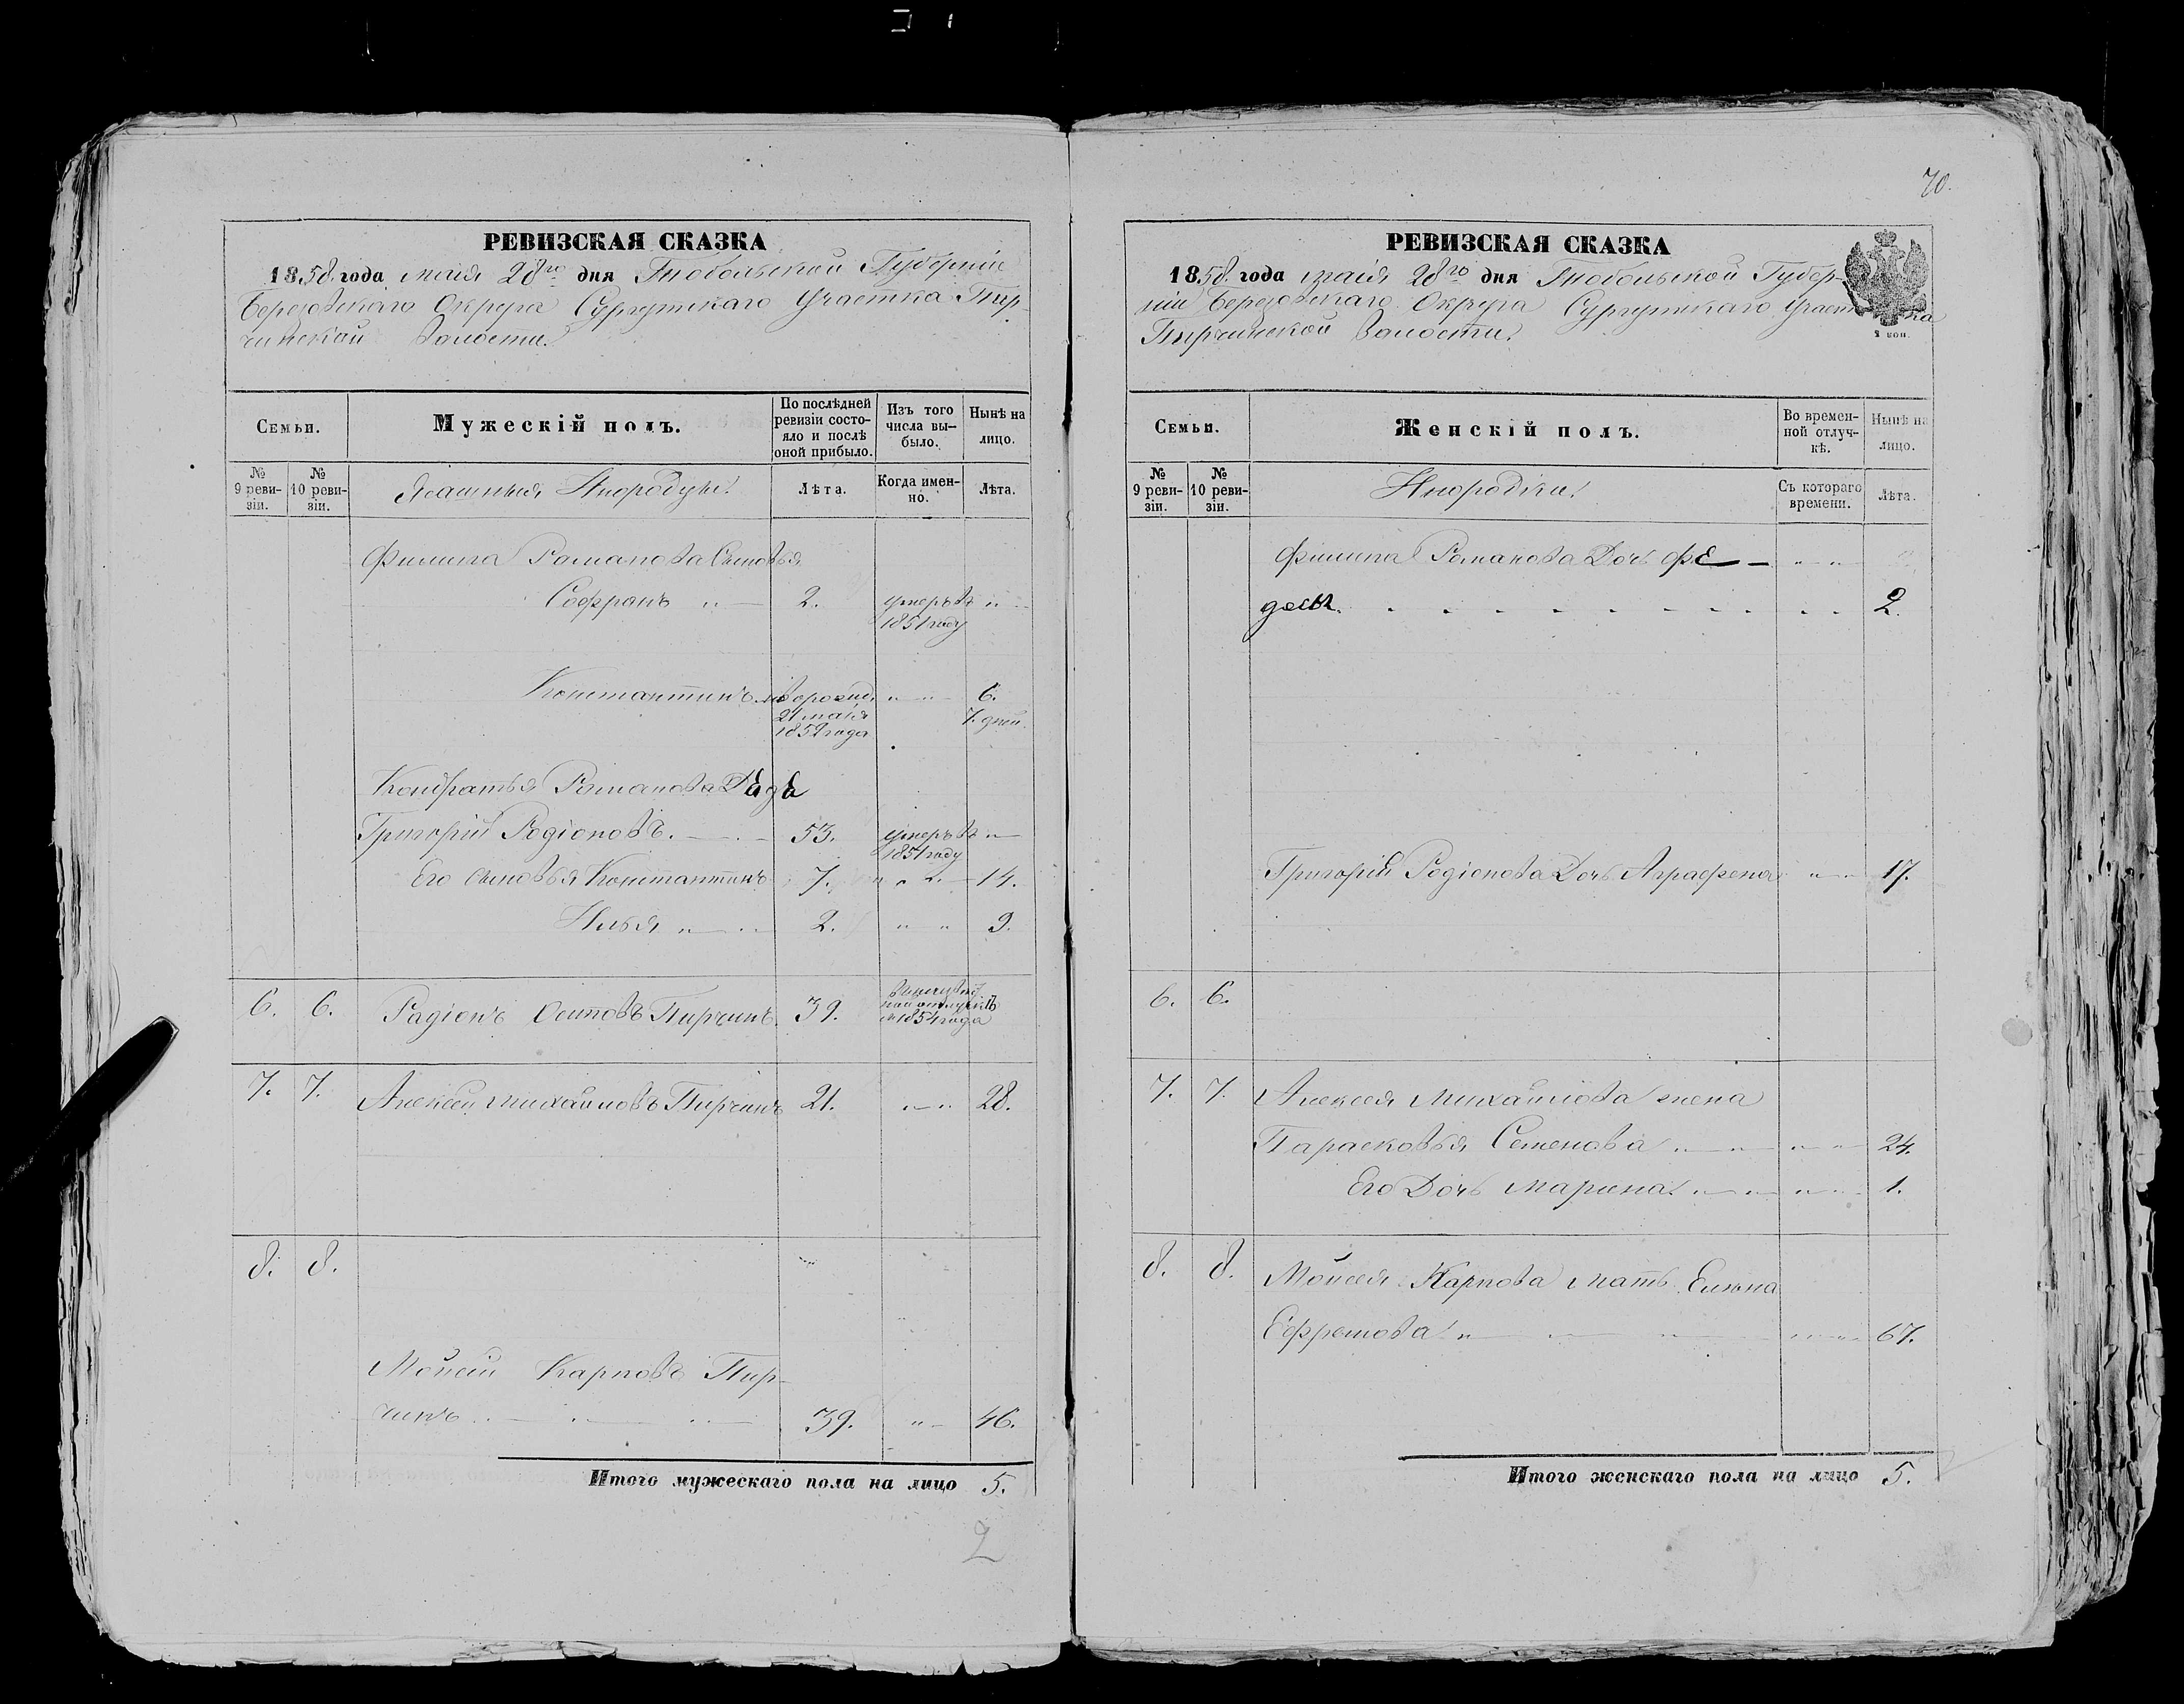 РЕВИЗСКАЯ СКАЗКА
1858. года маія 28го дня Тобольской Губерніи
Березовскаго Округа Сургутскаго Участка Пир-
чинской Волости.
Семьи.
Мужескій полъ.
По послѣдней ревизіи состо-яло и послѣ оной прибыло.
Изъ того числа вы-было.
Нынѣ на лицо.
№ 9 реви-зіи.
№ 10 реви-зіи.
Ясашныя Инородцы.
Лѣта.
Когда имен-но.
Лѣта.
Филипа Романова Сыновья
Софронъ 2. умеръ въ
1851 году
Константинъ новорожд. 6.
21 маія 7. дней.
1852 года
Кондратья Романова Дядя
Григорій Родіоновъ. 53. умеръ въ
1851 году
Его сыновья Константинъ 7. 14.
Илья 2. 9.
6. 6. Радіонъ Осиповъ Пирчинъ. 39.
съ 1854 года
7. 7. Алексей Михайловъ Пирчинъ 21. 28.
8. 8.
Мойсей Карповъ Пир-
чинъ 39. 46.
Итого мужескаго пола на лицо 5.
2
70.
РЕВИЗСКАЯ СКАЗКА
1858. года маія 28го дня Тобольской Губер-
ніи Березовскаго Округа Сургутскаго Участка
Пирчинской Волости.
2 коп.
Семьи.
Женскій полъ.
Во времен-ной отлуч-кѣ.
Нынѣ на лицо.
№ 9 реви-зіи.
№ 10 реви-зіи.
Инородки.
Съ котораго времени.
Лѣта.
Филипа Романова Дочь Фе-
досья. 2.
Григорій Родіонова Дочь Аграфена 17.
6. 6.
7. 7. Алексея Михайлова жена
Парасковья Семенова 24.
Его Дочь Марина. 1.
8. 8. Мойсея Карпова мать Елена
Ефремова 67.
Итого женскаго пола на лицо 5.